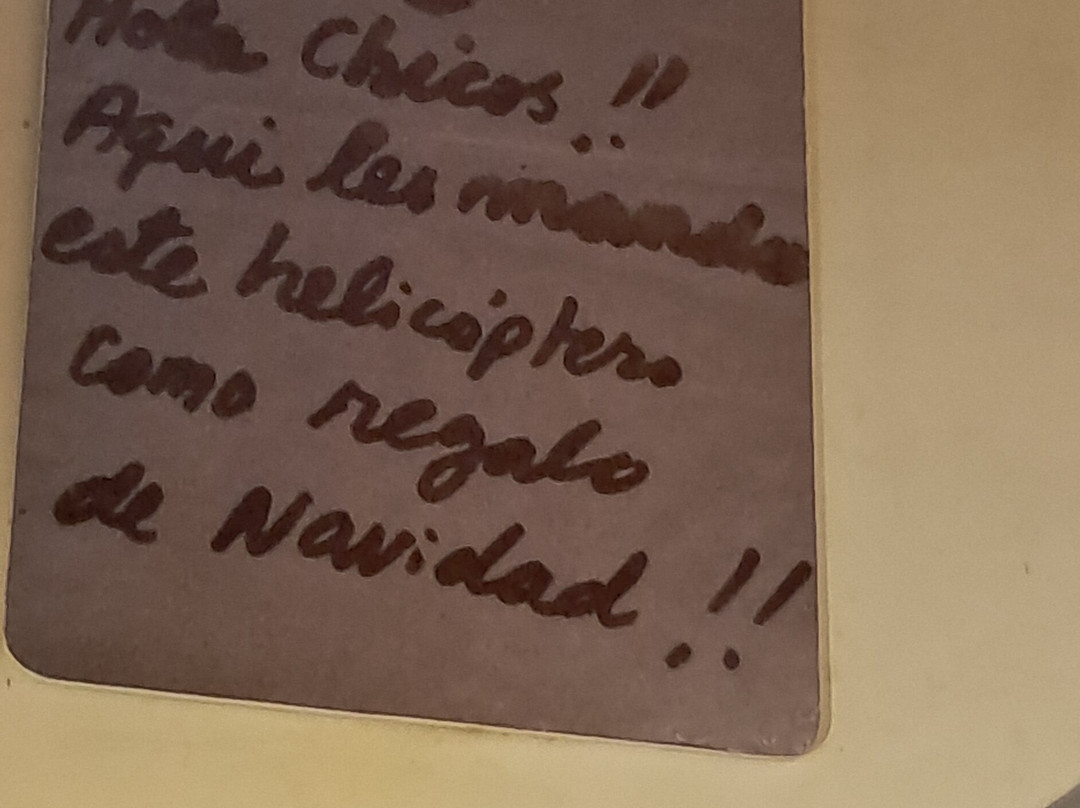 Hola Chicos!!
Aqui les mando
este helicóptero
como regalo
de Navidad!!